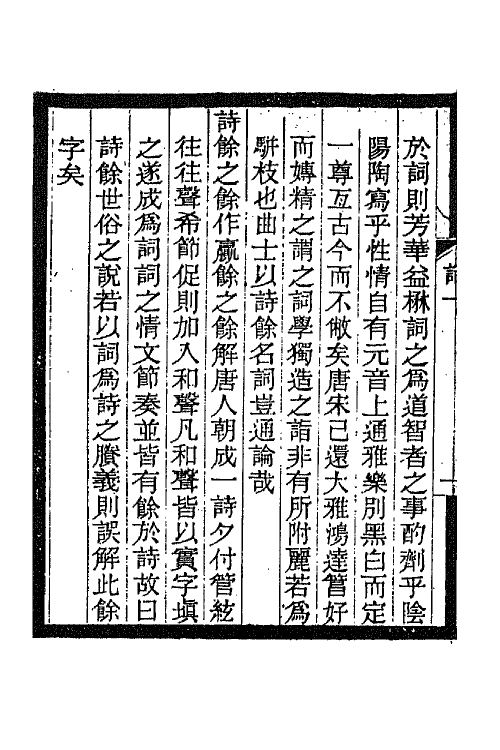 於詞則芳華益楙詞之爲道智者之事酌劑乎陰
陽陶寫乎性情自有元音上通雅樂別黑白而定
一尊亙古今而不敝矣唐宋已還大雅鴻達篤好
而嫥精之謂之詞學獨造之詣非有所附麗若爲
駢枝也曲士以詩餘名詞豈通論哉
詩餘之餘作贏餘之餘解唐人朝成一詩夕付管絃
往往聲希節促則加入和聲凡和聲皆以實字塡
之遂成爲詞詞之情文節奏並皆有餘於詩故曰
詩餘世俗之說若以詞爲詩之賸義則誤解此餘
字矣